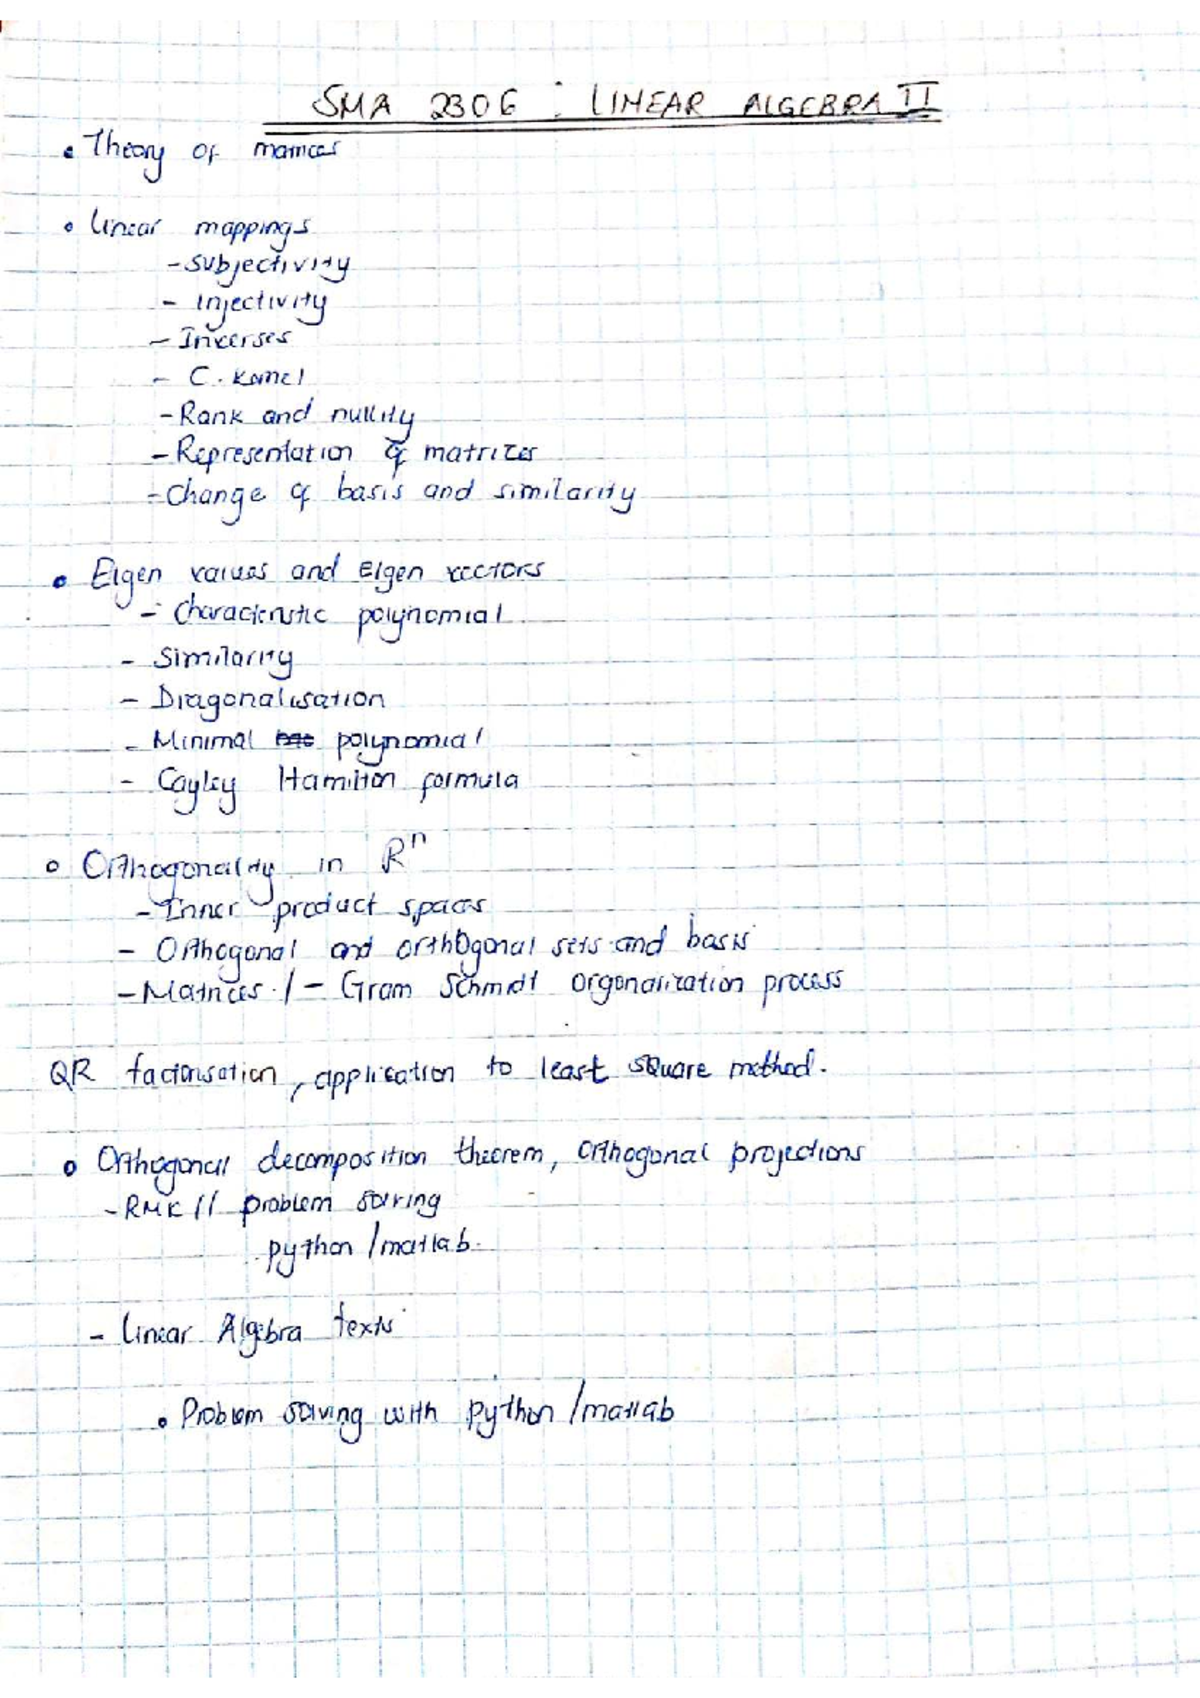 SMA 2306 : LINEAR ALGEBRA II
• Theory of matrices
• Linear mappings
- Subjectivity
- Injectivity
- Inverses
- C. Kernel
- Rank and nullity
- Representation of matrices
- Change of basis and similarity
• Eigen values and Eigen vectors
- Characteristic polynomial
- Similarity
- Diagonalisation
- Minimal polynomial
- Cayley Hamilton formula
• Orthogonality in Rⁿ
- Inner product spaces
- Orthogonal and orthogonal sets and basis
- Matrices / - Gram Schmidt orgonalization process
QR factorisation, application to least square method.
• Orthogonal decomposition theorem, orthogonal projections
- RMK // problem solving
python / matlab.
- Linear Algebra texts
• Problem solving with python / matlab